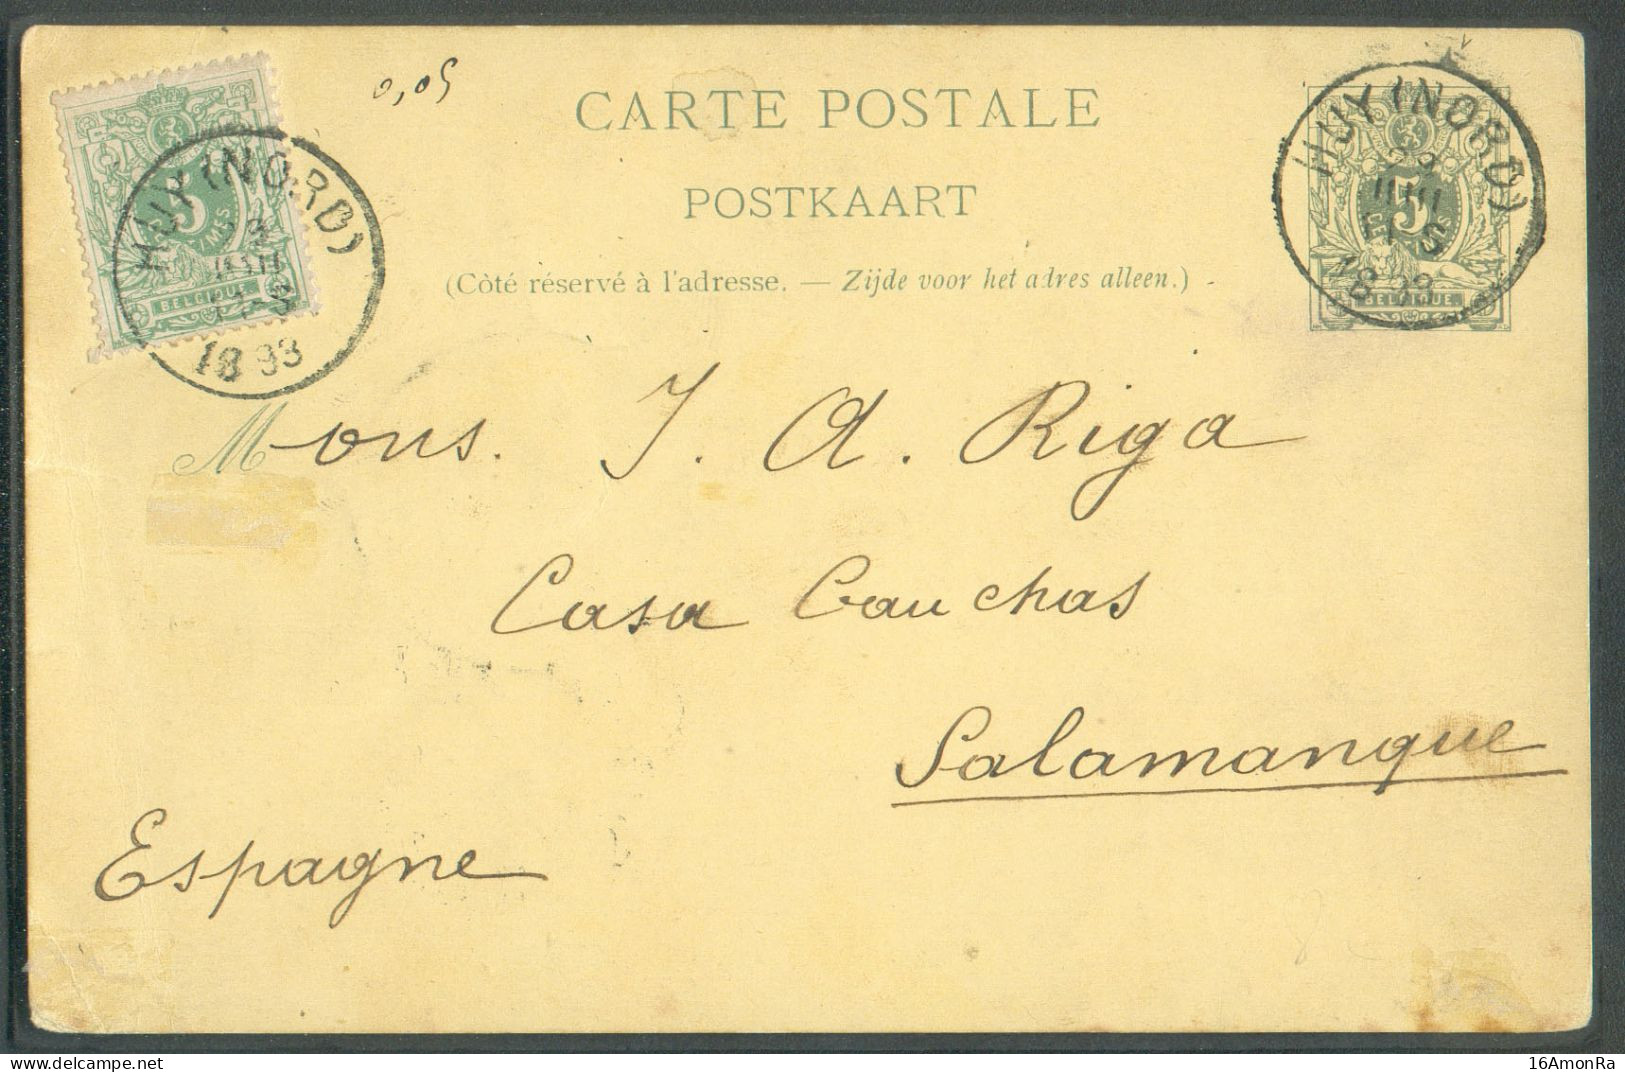 0,05
CARTE POSTALE
POSTKAART
(Côté réservé à l'adresse. — Zijde voor het adres alleen.)
HUY (NORD)
1893
5
BELGIQUE
HUY (NORD)
1893
5
BELGIQUE
Mons. J. A. Riga
Casa Cauchas
Salamanque
Espagne
16AmonRa